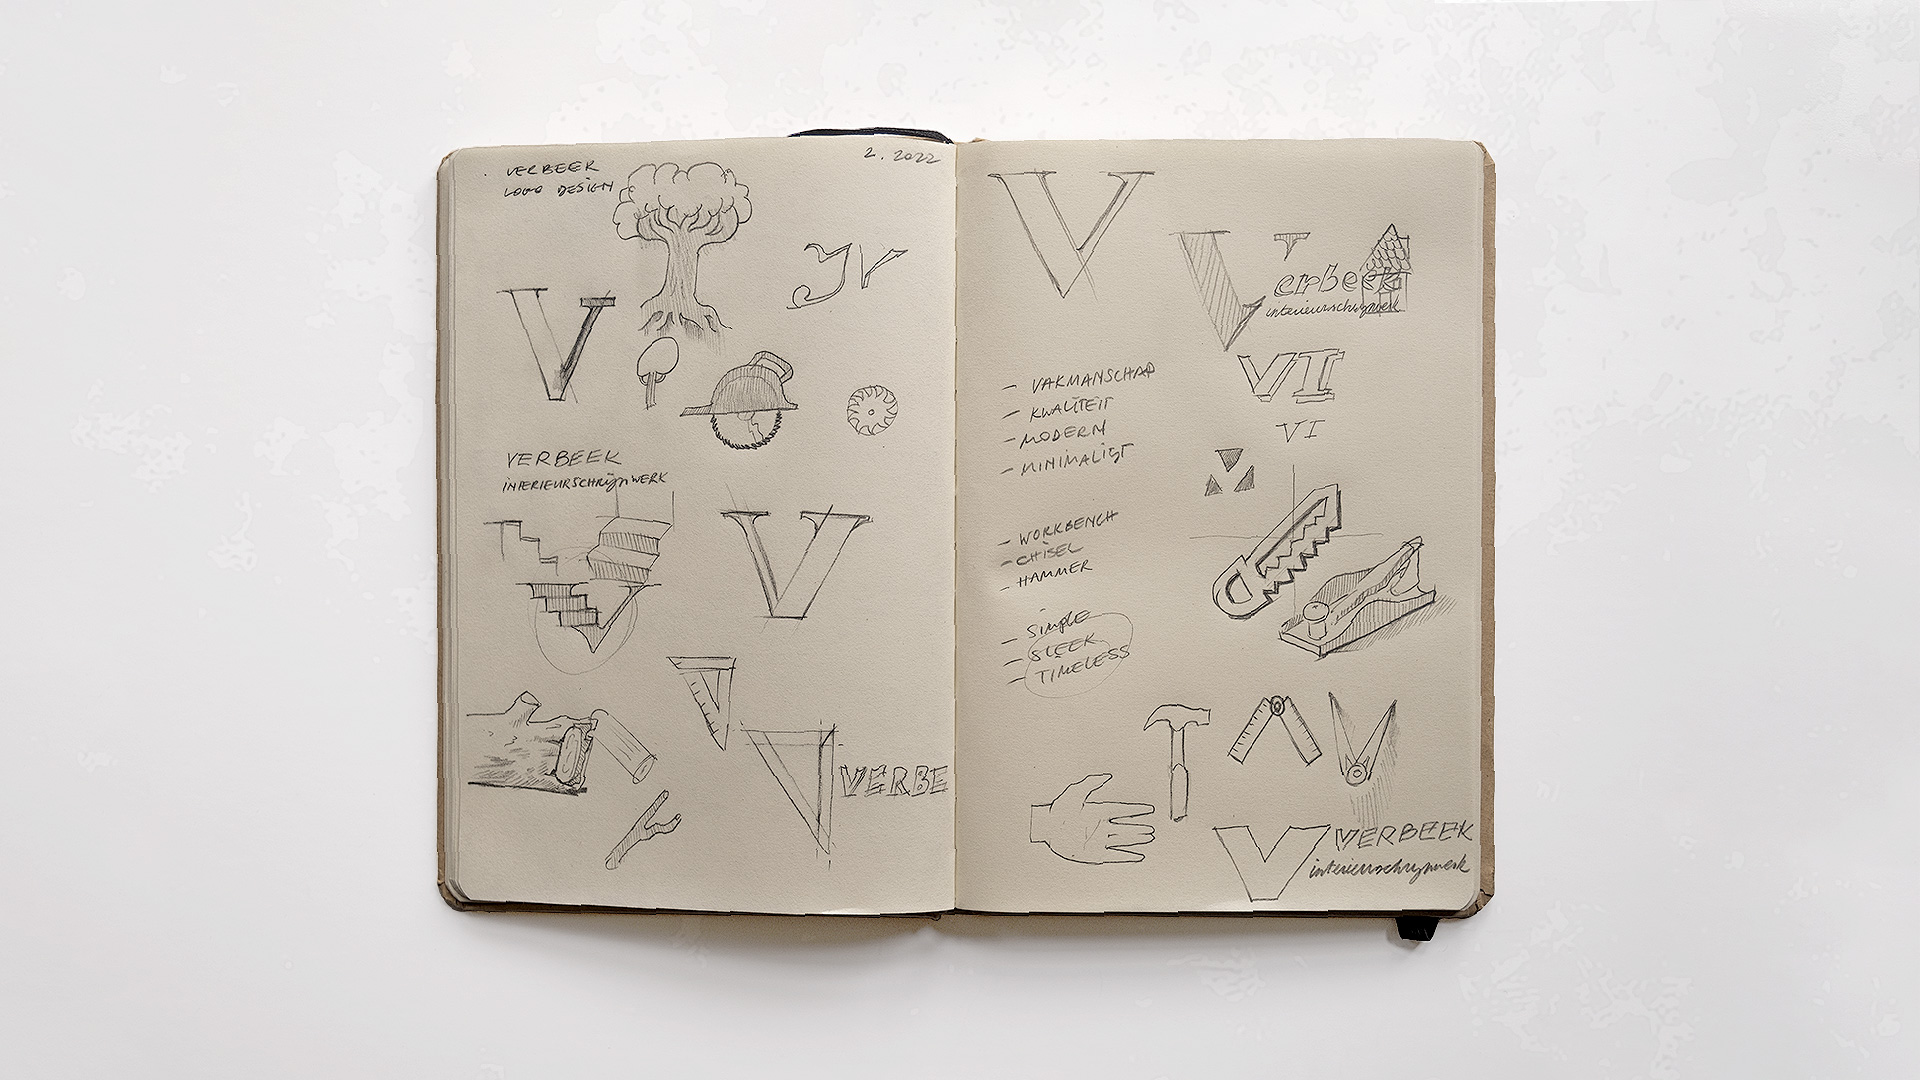 VERBEEK
LOGO DESIGN
2. 2022
V
VERBEEK
INTERIEURSCHRIJNWERK
V
V
V
VERBE
V
Verbeek
interieurschrijnwerk
VI
VI
- VAKMANSCHAP
- KWALITEIT
- MODERN
- MINIMALIST
- WORKBENCH
- CHISEL
- HAMMER
- SIMPLE
- SLEEK
- TIMELESS
V VERBEEK
interieurschrijnwerk